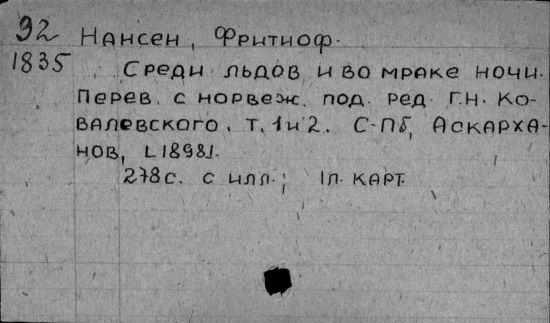 92 Нансен, Фритиоф.
1835
Среди льдов и во мраке ночи.
Перев. с норвеж. под. ред. Г.Н. Ко-
валевского. Т. 1 и 2. С-Пб, Аскарха-
нов, [1898].
278 с. с илл.; 1л. карт.